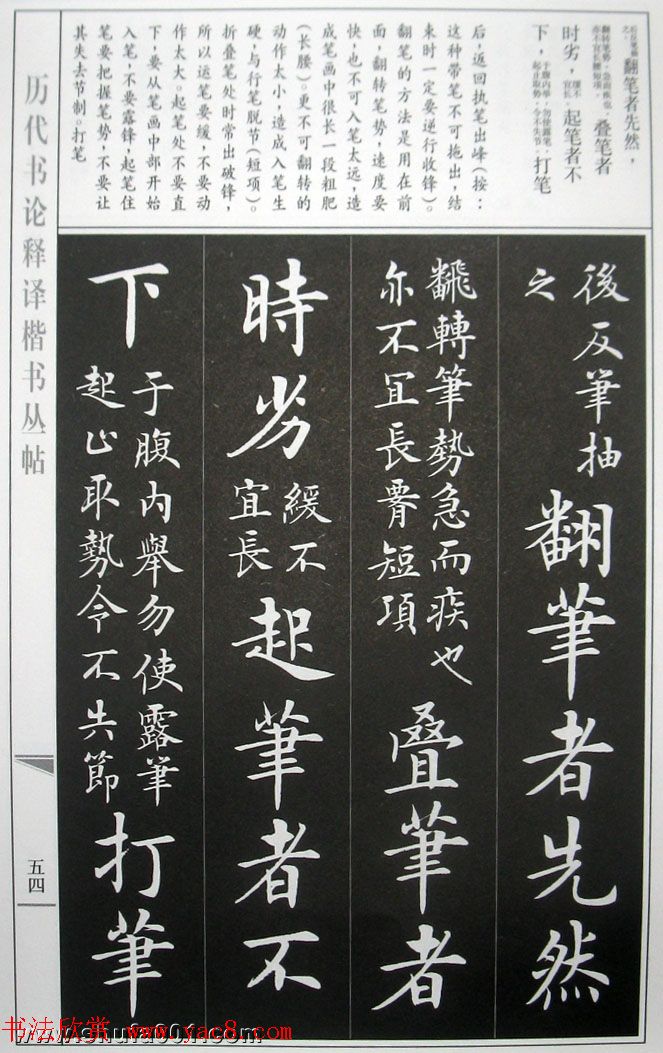 后反笔抽
之。
翻笔者先然，
翻转笔势，急而疾也，
亦不宜长腰短项。
叠笔者
时劣，
缓不
宜长。
起笔者不
下，
于腹内举，勿使露笔，
起止取势，令不失节。
打笔
后，返回执笔出峰（按：
这种带笔不可拖出，结
束时一定要逆行收锋）。
翻笔的方法是用在前
面，翻转笔势，速度要
快，也不可入笔太远，造
成笔画中很长一段粗肥
（长腰）。更不可翻转的
动作太小，造成入笔生
硬，与行笔脱节（短项）。
折叠笔处时常出破锋，
所以运笔要缓，不要动
作太大。起笔处不要直
下，要从笔画中部开始
入笔，不要露锋，起笔住
笔要把握笔势，不要让
其失去节制。打笔
後反筆抽
之
翻筆者先然
飜轉筆勢急而疾也
亦不冝長腰短項
疊筆者
時劣
緩不
宜長
起筆者不
下
于腹内舉勿使露筆
起止取勢令不失節
打筆
历代书论释译楷书丛帖
五四
书法欣赏 www.yac8.com